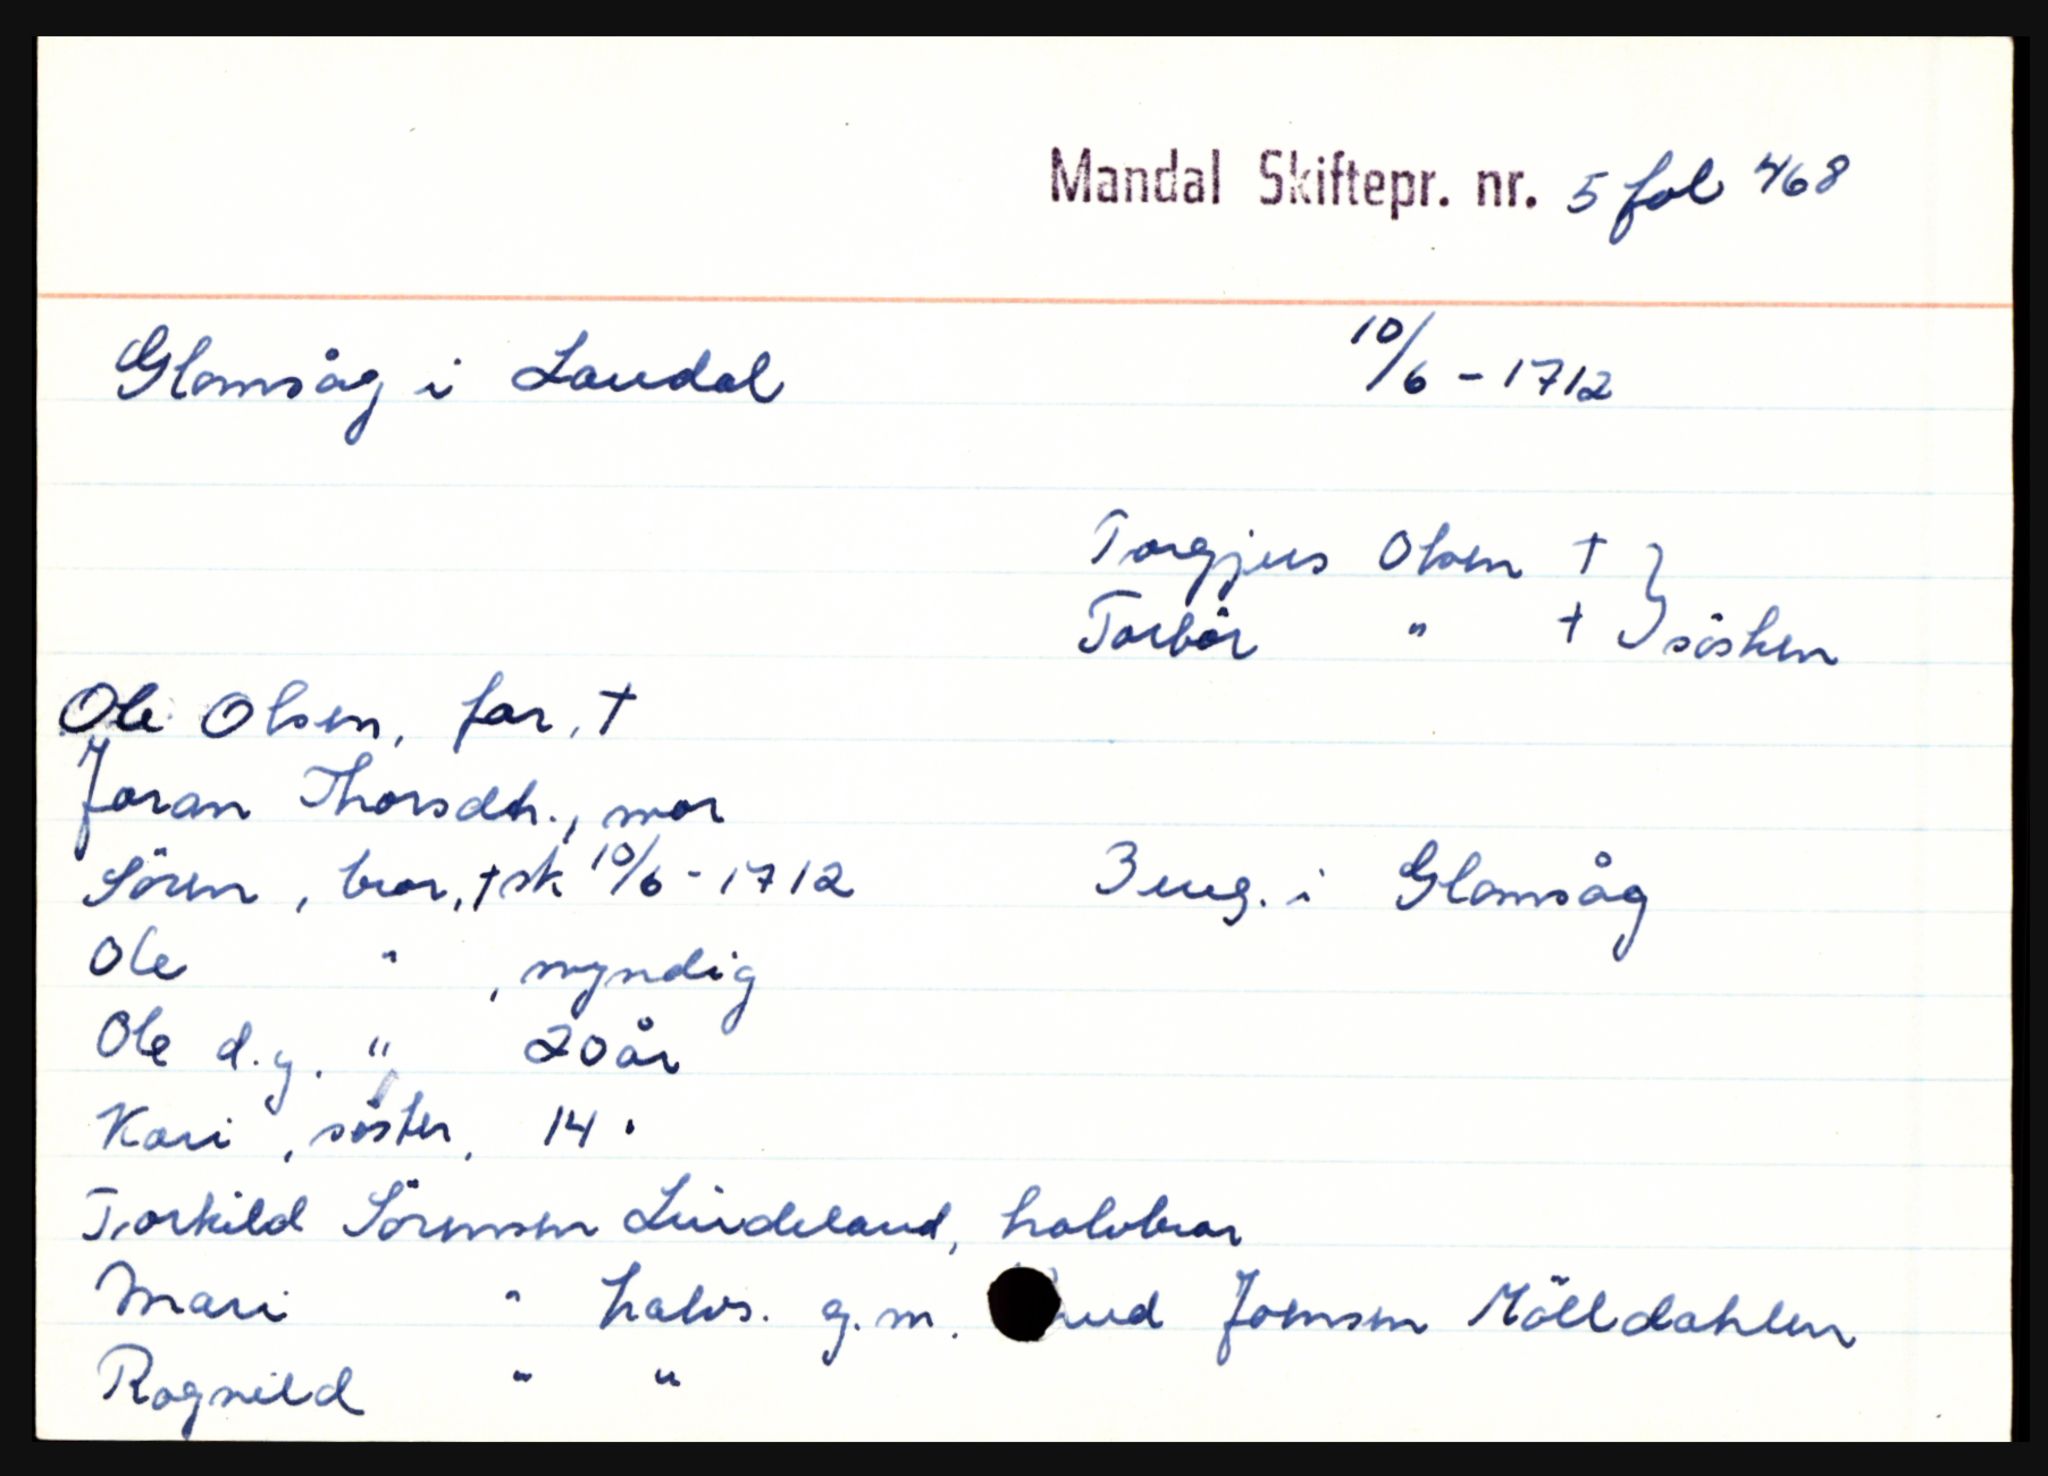 Mandal Skiftepr. nr. 5 fol 468
Glamsåg i Laudal 10/6 - 1712
Torgjus Olsen †
Torbör " † } sösken
Ole Olsen, far, †
Joran Thorsdtr., mor
Sören, bror, † sk 10/6 - 1712 3 eng. i Glamsåg
Ole " , myndig
Ole d.y. " 20 år
Kari , söster, 14 "
Torkild Sörensen Lindeland, halvbror
Mari " halvs. g.m. Joensen Mölldahlen
Ragnild " "